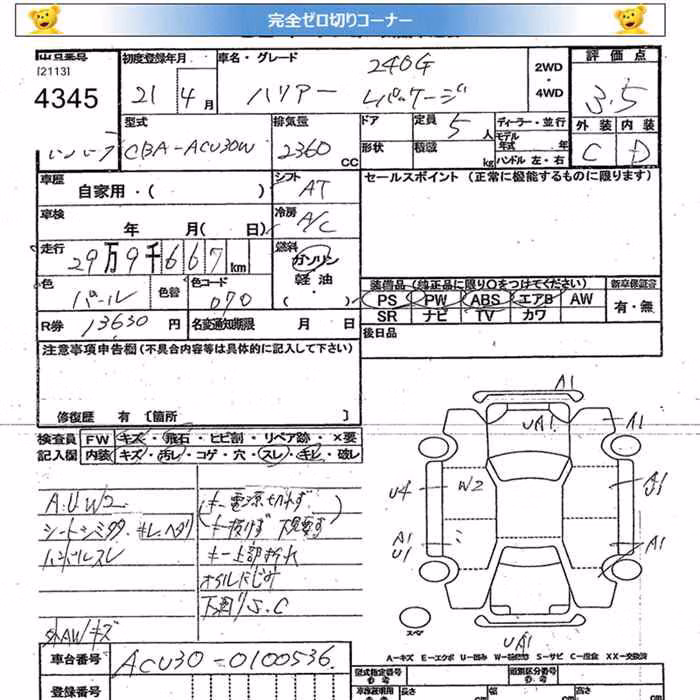 完全ゼロ切りコーナー
出品番号
[2113]
4345
初度登録年月
21 4月
車名・グレード
ハリアー
240G
Lパッケージ
2WD
・
4WD
評価点
3.5
外装 内装
C D
型式
CBA-ACU30W
排気量
2360
CC
ドア
形状
定員
5
人
積載
kg
ディーラー・並行
モデル
年式 年
ハンドル 左・右
車歴
自家用・( )
シフト
AT
セールスポイント (正常に機能するものに限ります)
車検
年 月( 日)
冷房
A/C
走行
29万9千667km
燃料
ガソリン
軽油
( )
色
パール
色替
色コード
070
装備品(純正品に限り○をつけてください)
新車保証書
PS PW ABS エアB AW
有・無
SR ナビ TV カワ
R券 13630 円
名変通知期限 月 日
後日品
注意事項申告欄(不具合内容等は具体的に記入して下さい)
修復歴 有 [箇所 ]
検査員
記入欄
FW キズ・飛石・ヒビ割・リペア跡・×要
内装 キズ・汚レ・コゲ・穴・スレ・キレ・破レ
A.U W2
シートシミ
ハンドルスレ
キー電源切れず
キー抜けず
キー上部折れ
オイルにじみ
下廻りS.C
外AW/キズ
A1
UA1
A1
U4
W2
A1
U1
A1
U1
A1
スペア
UA1
A－キズ E－エクボ U－凹み W－補修跡 S－サビ C－腐食 XX－交換済
車台番号
ACU30-0100536
登録番号
型式指定番号
類別区分番号
長さ
幅
高さ